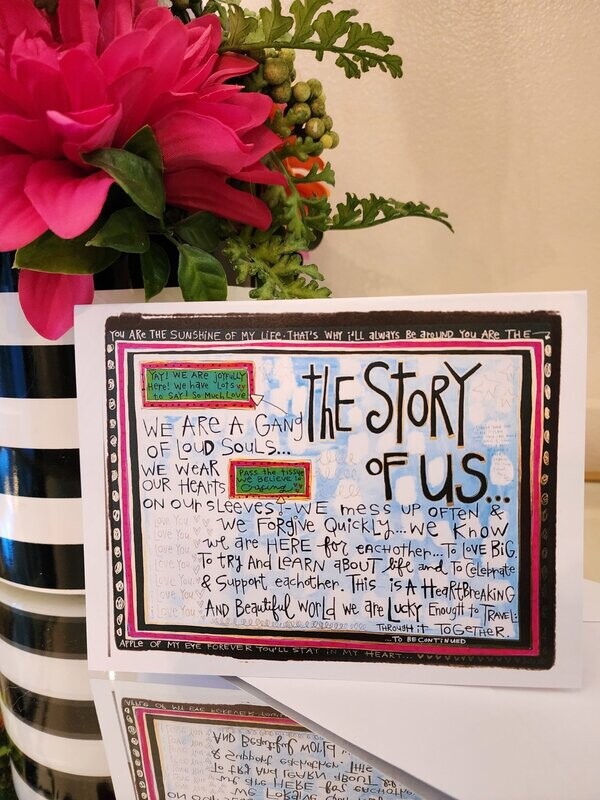 YOU ARE THE SUNSHINE OF MY LIFE. THAT'S WHY I'LL ALWAYS BE AROUND YOU ARE THE
YAY! WE ARE JOYFULLY
HERE! WE HAVE LOTS
TO SAY! SO MUCH LOVE
THE STORY
OF US...
WE ARE A GANG
OF LOUD SOULS...
WE WEAR
OUR HEARTS
PASS THE TISSUE
WE BELIEVE IN
CRYING
ON OUR SLEEVES!-WE MESS UP OFTEN &
WE FORGIVE QUICKLY...WE KNOW
WE ARE HERE FOR EACHOTHER...TO LOVE BIG.
TO TRY AND LEARN ABOUT LIFE AND TO CELEBRATE
& SUPPORT EACHOTHER. THIS IS A HEARTBREAKING
AND BEAUTIFUL WORLD WE ARE LUCKY ENOUGH TO TRAVEL
THROUGH IT TOGETHER.
...TO BE CONTINUED
Love You
Love You
Love You
Love You
Love You
i Love You
APPLE OF MY EYE FOREVER YOU'LL STAY IN MY HEART...